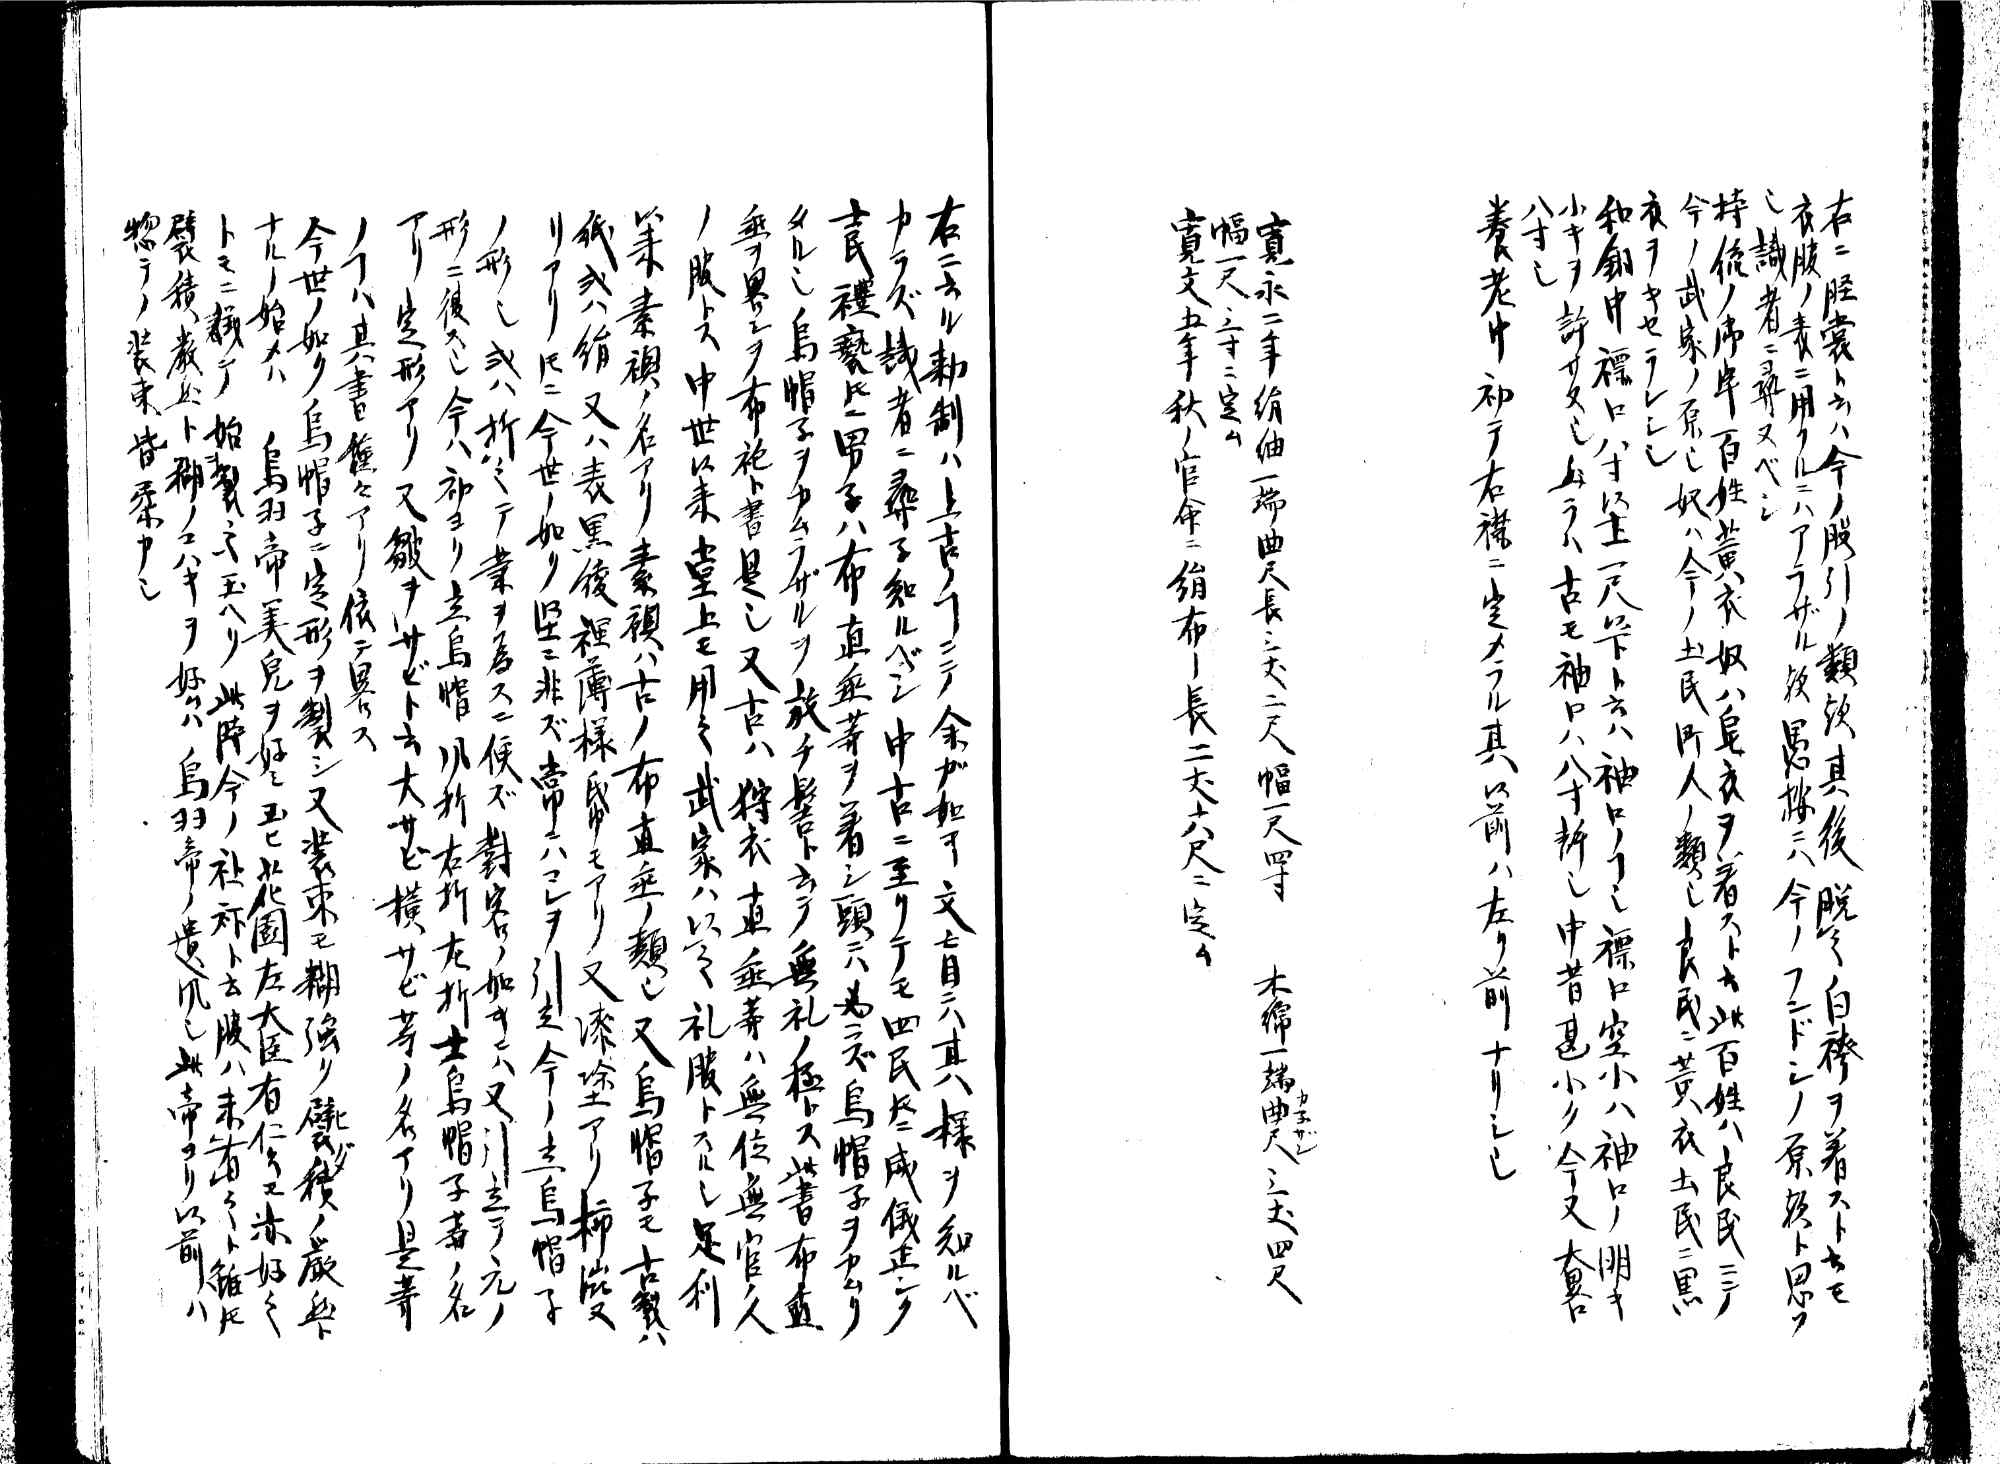 右ニ脛裳ト云ハ今ノ股引ノ類歟其後脱〆白袴ヲ着スト云モ
衣服ノ表ニ用フルニハアラザル歟愚按ニハ今ノフンドシノ原歟ト思フ
也識者ニ尋ヌベシ
持統ノ御宇百姓黄衣奴ハ皂衣ヲ着スト云此百姓ハ良民ニシノ
今ノ武家ノ原也奴ハ今ノ土民町人ノ類也良民ニ黄衣土民ニ黒
衣ヲキセラレシ也
和銅中褾口八寸以上一尺以下ト云ハ袖口ノ也褾口窄小ハ袖口ノ明キ
小キヲ許サヌ也与ラハ古モ袖口ハ八寸許也中昔甚小ク今又大畧
八寸也
養老中初テ右襟ニ定メラル其以前ハ左リ前ナリシ也
寛永二年絹紬一端曲尺長三丈二尺幅一尺四寸 木綿一端曲尺カネザシ三丈四尺
幅一尺三寸ニ定ム
寛文五年秋ノ官命ニ絹布ノ長二丈六尺ニ定ム
右ニ云ル勅制ハ上古ノニテ余ガ如キ文盲ニハ其ハ様ヲ知ルベ
カラズ識者ニ尋子知ルベシ中古ニ至リテモ四民トモニ威儀正シク
士民禮褻トモニ男子ハ布直垂等ヲ着シ頭ニハ必ラズ烏帽子ヲカムリ
タル也烏帽子ヲカムラザルヲ放チ髻ト云テ無礼ノ極トス此書布直
垂ヲ畧シヲ布袍ト書是也又古ハ狩衣直垂等ハ無位無官ノ人
ノ服トス中世以来堂上モ用之武家ハ以之礼服トスル也足利
以来素襖ノ名アリ素襖ハ古ノ布直垂ノ類也又烏帽子モ古製ハ
紙或ハ絹又ハ表黒綾裡薄様帋モアリ又漆塗アリ柿渋又
リアリトモニ今世ノ如ク堅ニ非ズ常ニハコレヲ引立今ノ立烏帽子
ノ形也或ハ折之テ業ヲ為スニ便ズ對客ノ如キニハ又引立テ元ノ
形ニ復ス也今ハ初ヨリ立烏帽風折右折左折士烏帽子等ノ名
アリ定形アリ又皺ヲサビト云大サビ横サビ等ノ名アリ是等
ノハ其書種々アリ依テ畧ス
今世ノ如ク烏帽子ニ定形ヲ製シ又装束モ糊強ク襞積ヒダノ嚴然ト
ナルノ始メハ 鳥羽帝美皃ヲ好ミ玉ヒ花園左大臣有仁公モ亦好之
トモニ議テ始製之玉ヘリ此時今ノ社裃ト云服ハ未有之ト雖トモ
襞積嚴然ト糊ノコハキヲ好ハ鳥羽帝ノ遺風也此帝ヨリ以前ハ
惣テノ装束皆柔カ也